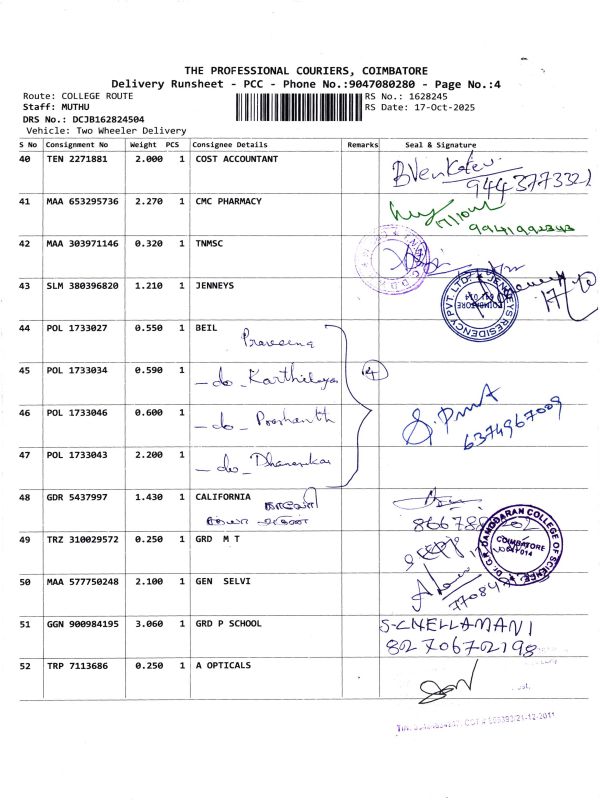 THE PROFESSIONAL COURIERS, COIMBATORE
Delivery Runsheet - PCC - Phone No.:9047080280 - Page No.:4
Route: COLLEGE ROUTE RS No.: 1628245
Staff: MUTHU RS Date: 17-Oct-2025
DRS No.: DCJB162824504
Vehicle: Two Wheeler Delivery
S No Consignment No Weight PCS Consignee Details Remarks Seal & Signature
40 TEN 2271881 2.000 1 COST ACCOUNTANT
9443773321
41 MAA 653295736 2.270 1 CMC PHARMACY
42 MAA 303971146 0.320 1 TNMSC
43 SLM 380396820 1.210 1 JENNEYS
JENNEYS RESIDENCY PVT. LTD.
COIMBATORE
641 014
44 POL 1733027 0.550 1 BEIL
Praveena
45 POL 1733034 0.590 1
- do - 4
46 POL 1733046 0.600 1
- do - Prashanth
6374967009
47 POL 1733043 2.200 1
- do -
48 GDR 5437997 1.430 1 CALIFORNIA
49 TRZ 310029572 0.250 1 GRD M T
Dr. G.R. DAMODARAN COLLEGE OF SCIENCE
COIMBATORE
50 MAA 577750248 2.100 1 GEN SELVI
51 GGN 900984195 3.060 1 GRD P SCHOOL S-CHELLAMANI
8270672198
52 TRP 7113686 0.250 1 A OPTICALS